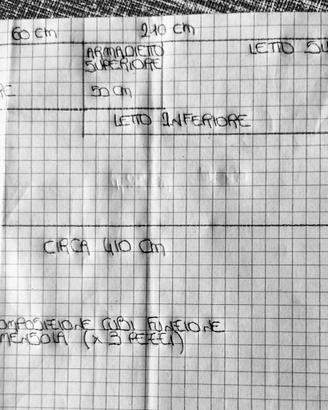 60 cm 210 cm
ARMADIETTO LETTO SU
SUPERIORE
RE 50 cm
LETTO INFERIORE
CIRCA 410 cm
OMPOSIZIONE CUBI FUNZIONE
MENSOLA (x 3 PEZZI)